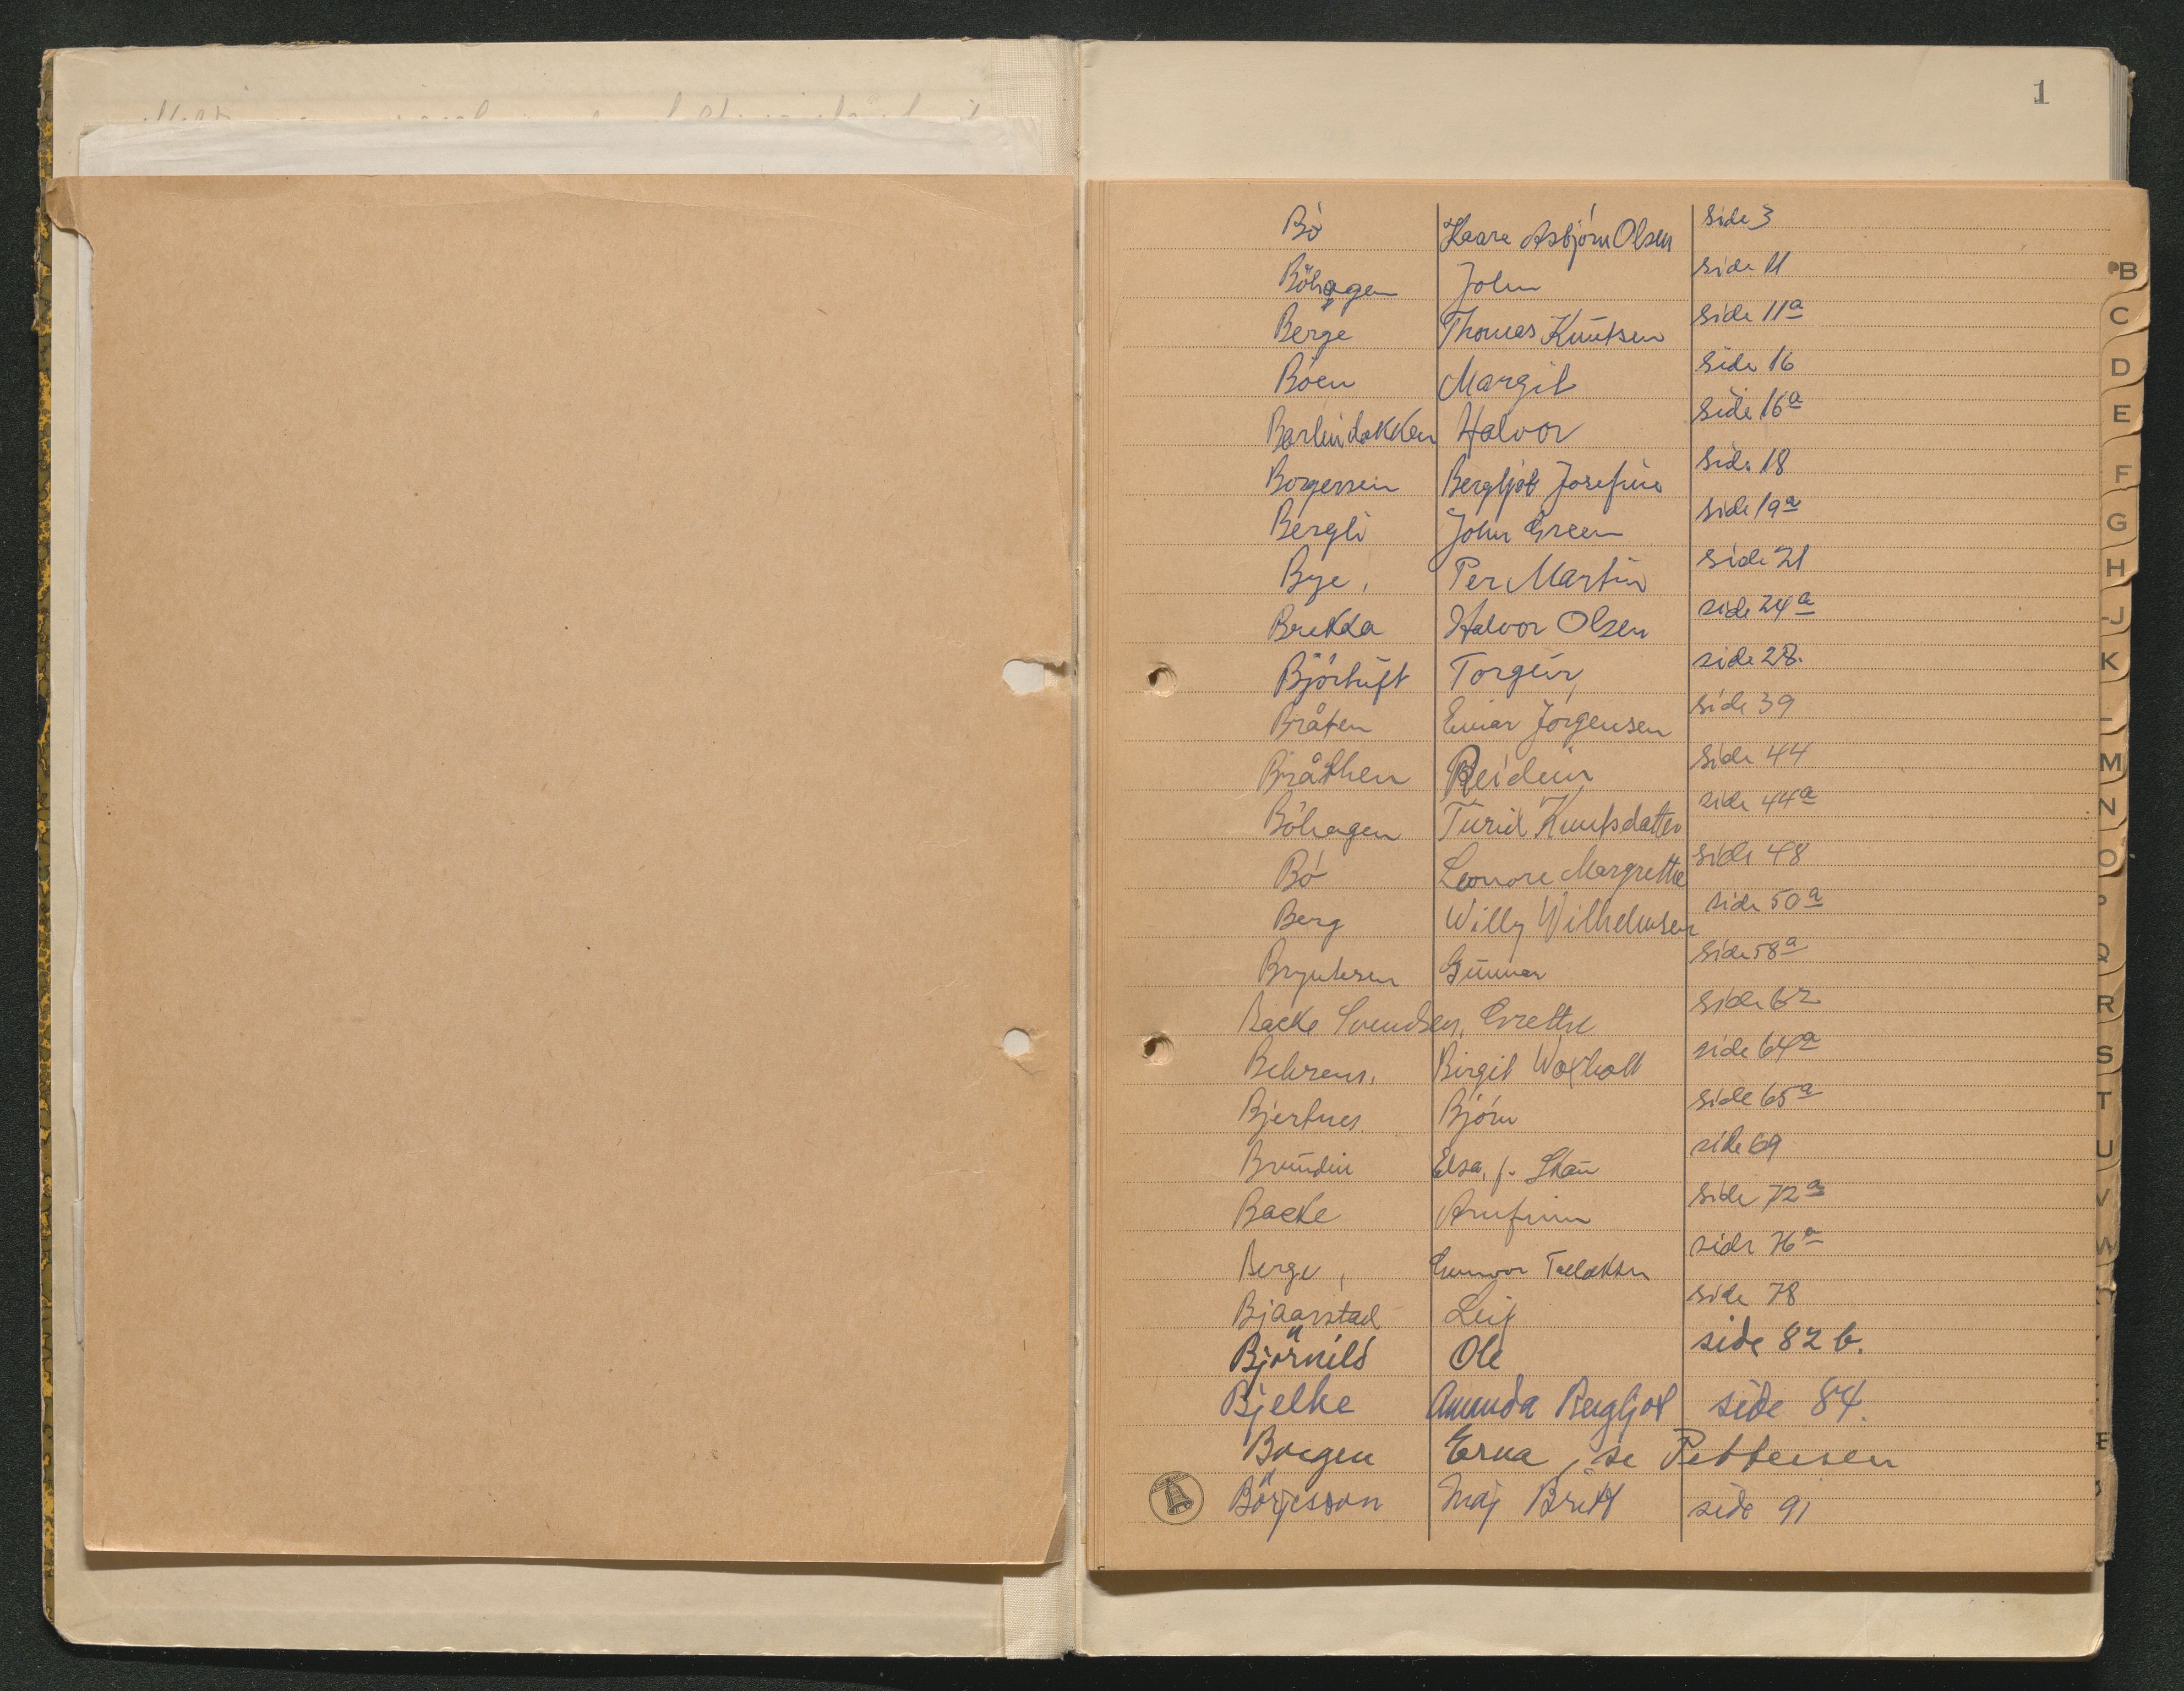 1
Bó Kaare Asbjórn Olsen side 3
Böhagen John side 11
Berge Thomas Knutsen side 11a
Bóen Margit side 16
Barlindokken Halvor side 16a
Borgersen Bergljot Josefine side 18
Bergli John Green side 19a
Bye, Per Martin side 21
Brekka Halvor Olsen side 24a
Björtuft Torgeir, side 28.
Bråten Einar Jörgensen side 39
Bråthen Reidun side 44
Bóhagen Turid Knutsdatter side 44a
Bó Leonore Margrethe side 48
Berg Willy Wilhelmsen side 50a
Bryntesen Gunnar side 58a
Backe Svendsen, Grethe side 62
Behrens, Birgit Woxholt side 64a
Bjertnes Bjórn side 65a
Brundin Elsa, f. Skau side 69
Backe Arnfinn side 72a
Berge, Gunvor Tellefsen side 76a
Bjaarstad Leif side 78
Ole side 82 b.
Bjelke Amanda Bergljot side 84.
Borgen Erna, se Pettersen
Börjesson Maj Britt side 91
B
C
D
E
F
G
H
J
K
M
N
O
P
Q
R
S
T
U
V
W
Æ